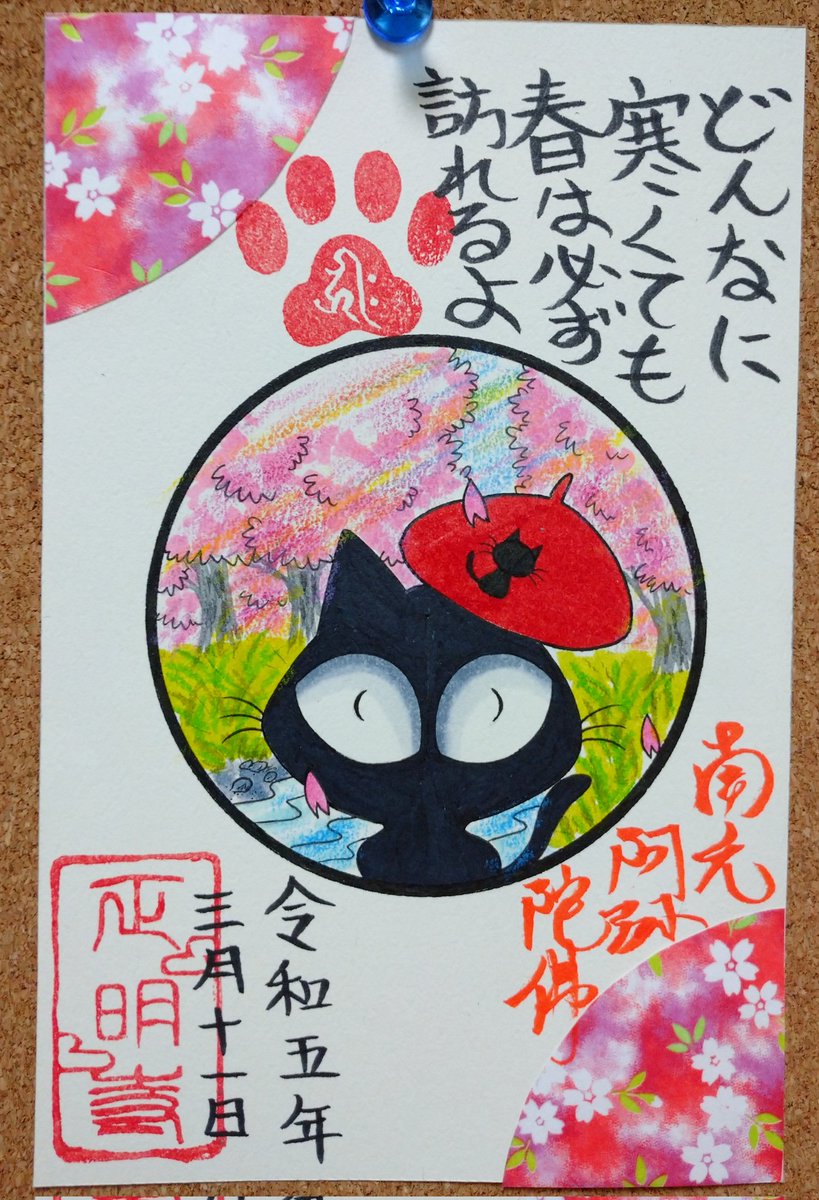 どんなに
寒くても
春は必ず
訪れるよ
南無
阿弥
陀佛
令和五年
三月十一日
正明寺